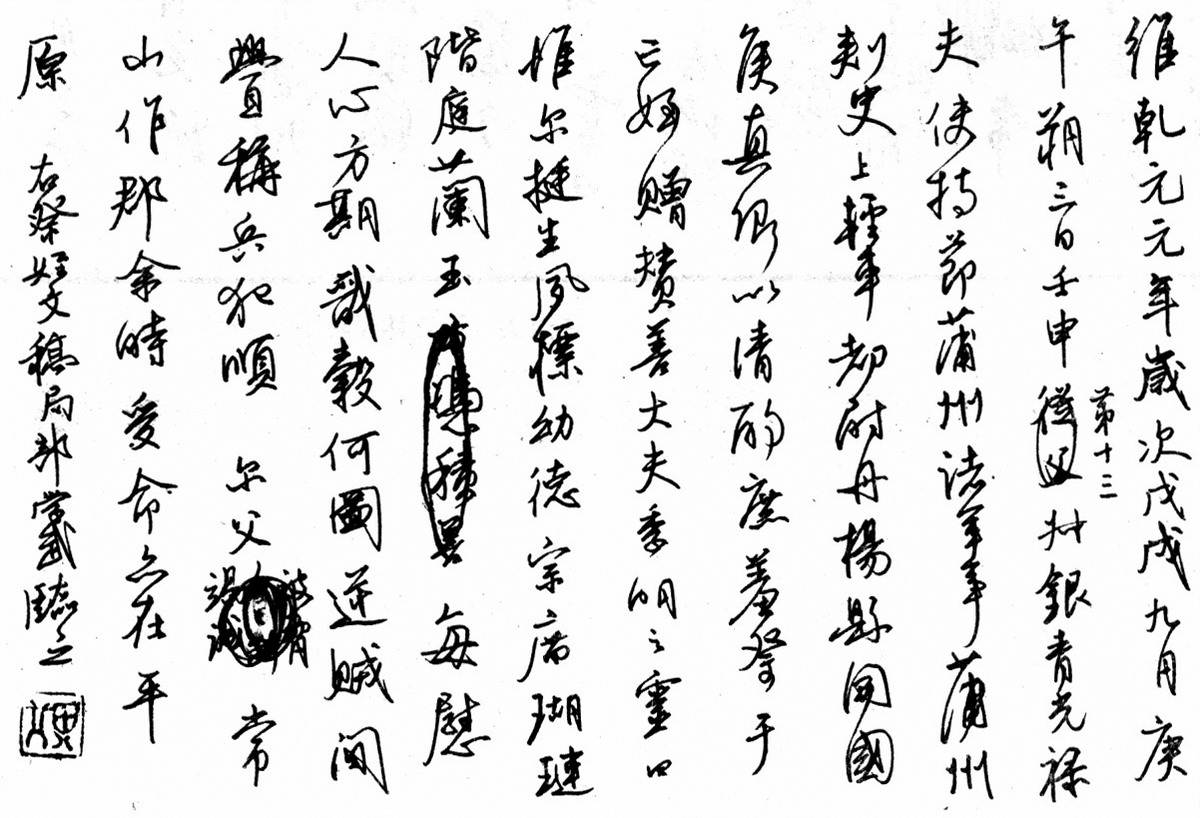 維乾元元年歲次戊戌九月庚
午朔三日壬申從父 第十三 叔銀青光祿
夫使持節蒲州諸軍事蒲州
刺史上輕車都尉丹楊縣開國
侯真卿以清酌庶羞祭于
亡姪贈贊善大夫季明之靈曰
惟尔挺生夙標幼德宗廟瑚璉
階庭蘭玉 每慰
人心方期戩穀何圖逆賊間
舋稱兵犯順 尔父 被脅 常
山作郡余時受命亦在平
原 右祭姪文稿局部 臨之